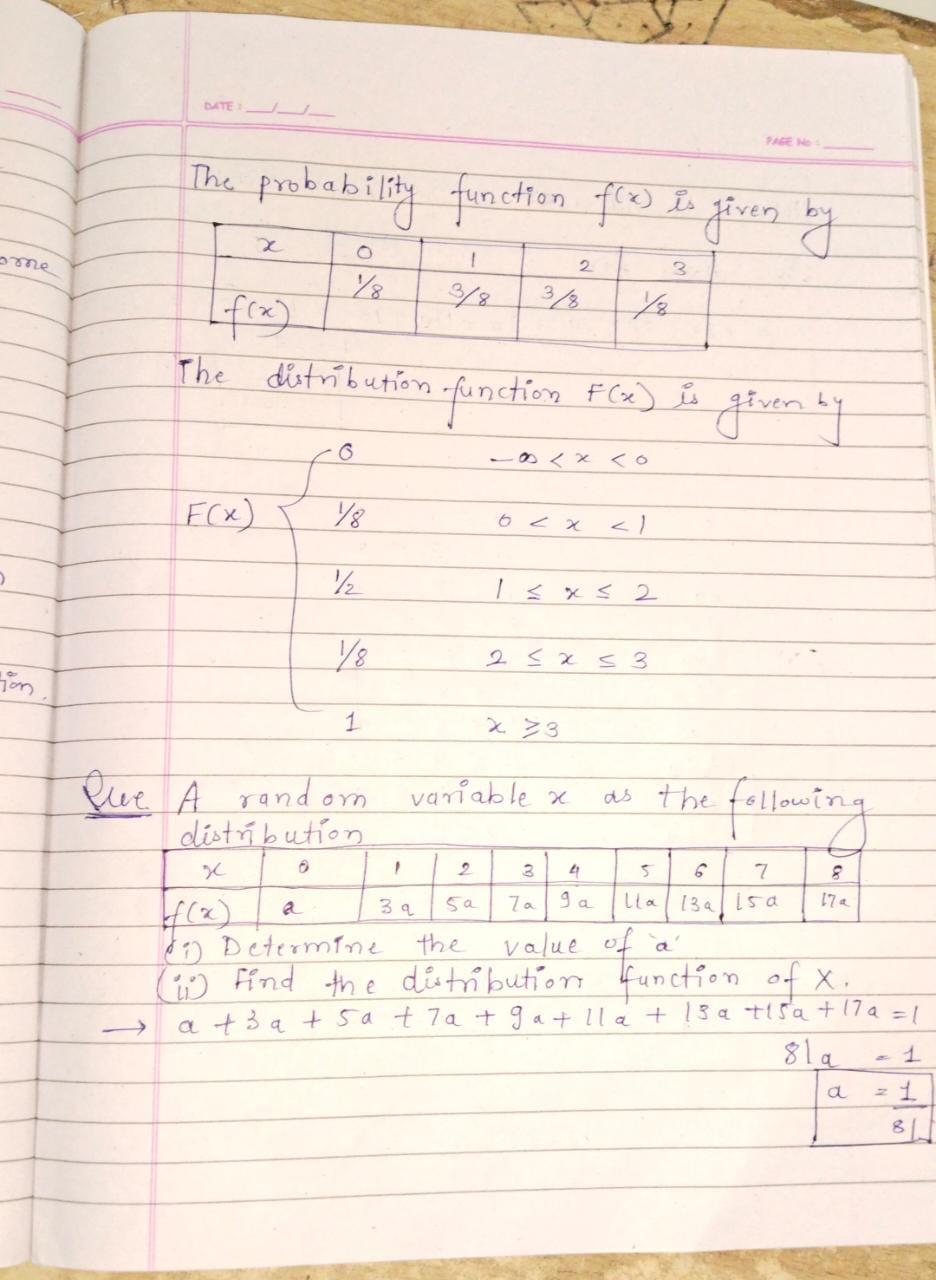 DATE: __/__/__
PAGE No: ______
The probability function f(x) is given by
x 0 1 2 3
f(x) 1/8 3/8 3/8 1/8
The distribution function F(x) is given by
0 -∞ < x < 0
F(x) { 1/8 0 < x < 1
1/2 1 ≤ x ≤ 2
1/8 2 ≤ x ≤ 3
1 x ≥ 3
Que A random variable x as the following
distribution
x 0 1 2 3 4 5 6 7 8
f(x) a 3a 5a 7a 9a 11a 13a 15a 17a
(i) Determine the value of 'a'
(ii) Find the distribution function of X.
→ a + 3a + 5a + 7a + 9a + 11a + 13a + 15a + 17a = 1
81a = 1
a = 1/81